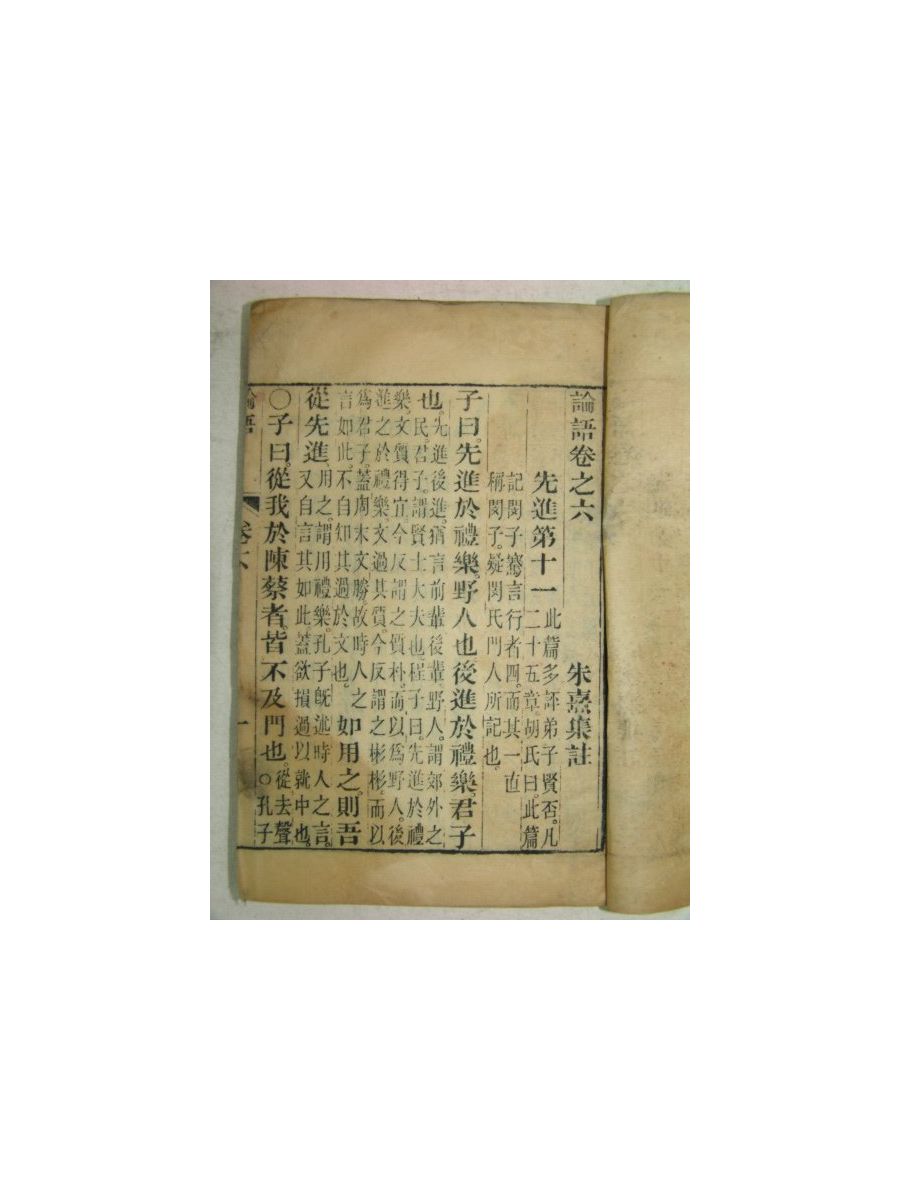 論語卷之六
朱熹集註
先進第十一
此篇多評弟子賢否。凡
二十五章。胡氏曰。此篇
記閔子騫言行者四。而其一直
稱閔子。疑閔氏門人所記也。
子曰。先進於禮樂。野人也後進於禮樂。君子
也。
先進後進。猶言前輩後輩。野人。謂郊外之
民。君子。謂賢士大夫也。程子曰。先進於禮
樂。文質得宜今反謂之質朴。而以爲野人。後
進之於禮樂。文過其質。今反謂之彬彬。而以
爲君子。蓋周末文勝。故時人之
言如此。不自知其過於文也。
如用之。則吾
從先進
用之。謂用禮樂。孔子旣述時人之言。
又自言其如此。蓋欲損過以就中也。
○子曰。從我於陳蔡者。皆不及門也。
從去聲
○孔子
論語
卷六
一